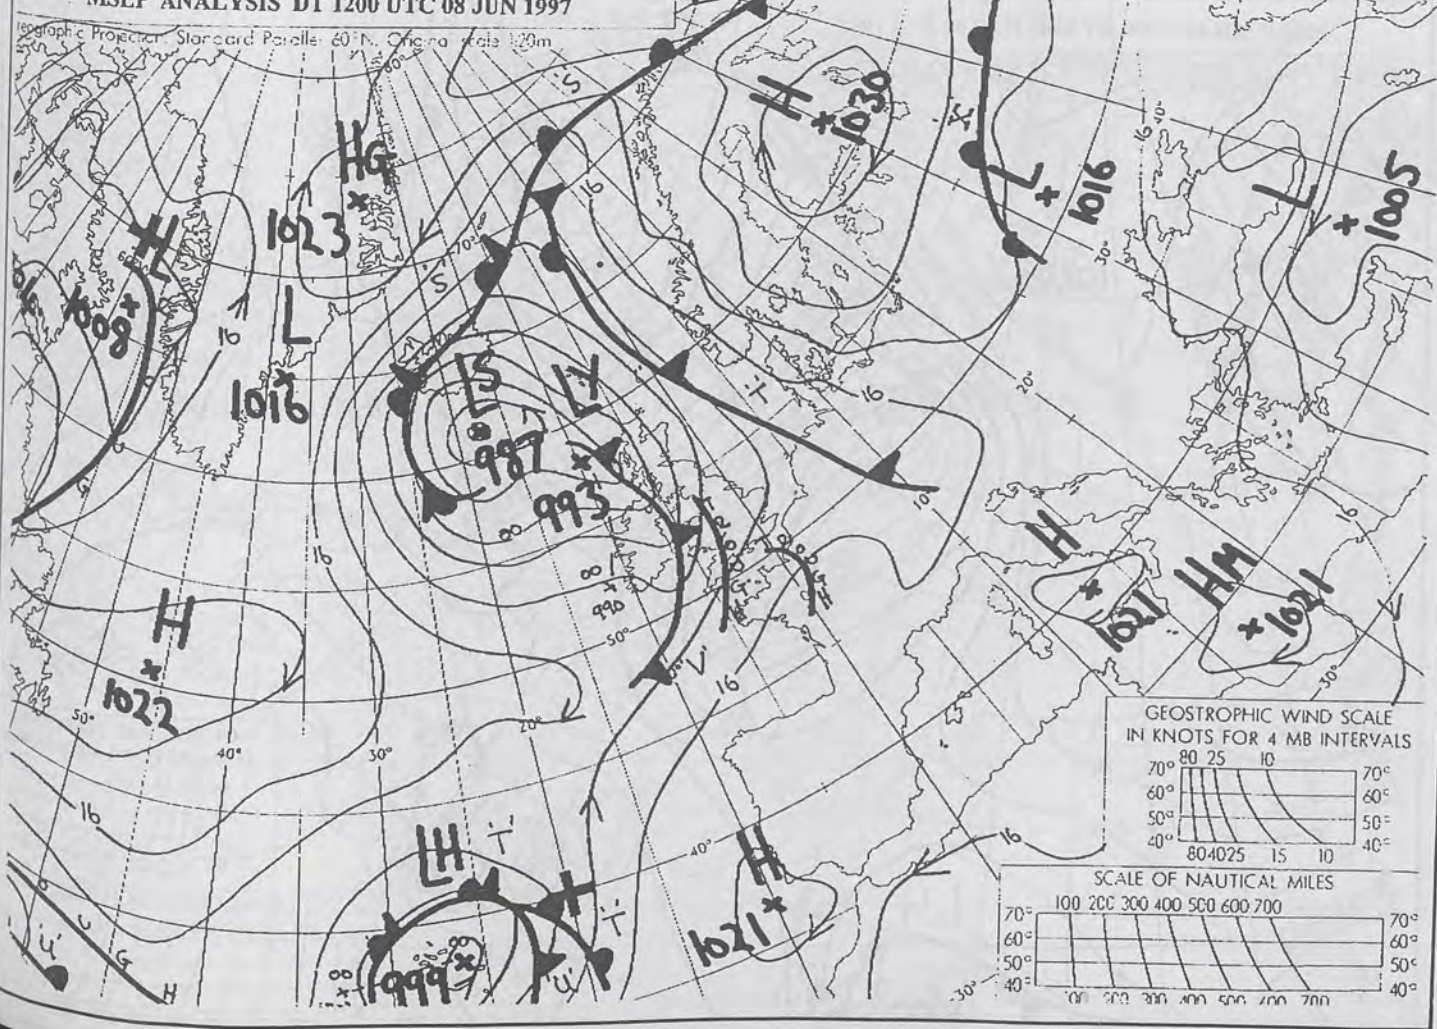 MSLP ANALYSIS DT 1200 UTC 08 JUN 1997
Projection. Standard Parallel 60°N. Original scale 1:20m
'S'
H
1030
'X'
L
1016
L
1005
HG
1023
16
-70°-
'S'
1008
L
1016
16
16
LS
987
LY
993
40°
30°
20°
10°
'T'
16
16
16
00
00
990
-50°-
'V'
16
H
1021
HM
1021
-30°-
H
1022
50°
40°
30°
20°
16
LH
'T'
999
'T'
'U'
'U'
G
H
00
00
-40°-
H
1021
16
-30°
GEOSTROPHIC WIND SCALE
IN KNOTS FOR 4 MB INTERVALS
80 25 10
70° 70°
60° 60°
50° 50°
40° 40°
80 40 25 15 10
SCALE OF NAUTICAL MILES
100 200 300 400 500 600 700
70° 70°
60° 60°
50° 50°
40° 40°
100 200 300 400 500 600 700